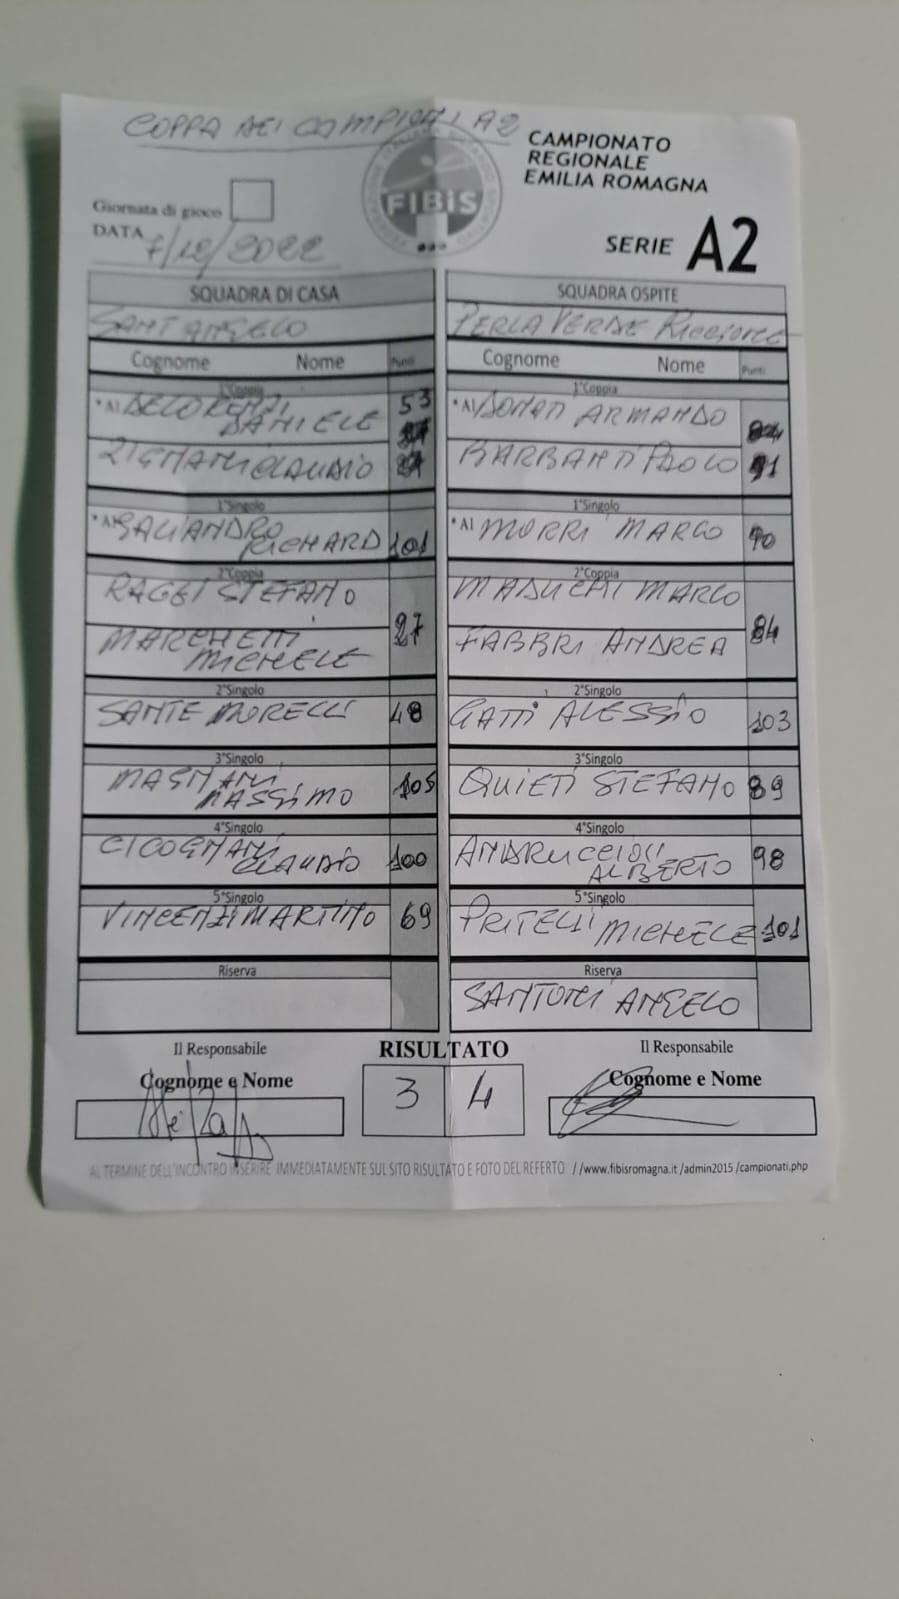 COPPA DEI CAMPIONI A2
CAMPIONATO
REGIONALE
EMILIA ROMAGNA
FIBiS
Giornata di gioco
DATA 7/12/2022
SERIE A2
SQUADRA DI CASA
SQUADRA OSPITE
SANT'ANGELO
PERLA VERDE RICCIONE
Cognome Nome Punti
Cognome Nome Punti
1°Coppia
1°Coppia
*Al DELORENZI DANIELE 53
*Al DONATI ARMANDO
ZIGNANI CLAUDIO
BARBANTI PAOLO 91
1°Singolo
1°Singolo
*Al GALIANDRO RICHARD 101
*Al MORRI MARCO 90
2°Coppia
2°Coppia
RAGGI STEFANO
MARCHETTI MICHELE
27
MARCO
FABBRI ANDREA
84
2°Singolo
2°Singolo
SANTE MORELLI 48
GATTI ALESSIO 103
3°Singolo
3°Singolo
MAGNANI MASSIMO 105
QUIETI STEFANO 89
4°Singolo
4°Singolo
CICOGNANI CLAUDIO 100
ANDRUCCIOLI ALBERTO 98
5°Singolo
5°Singolo
VINCENZI MARTINO 69
PRITELLI MICHELE 101
Riserva
Riserva
SANTONI ANGELO
Il Responsabile
RISULTATO
Il Responsabile
Cognome e Nome
3 4
Cognome e Nome
AL TERMINE DELL'INCONTRO INSERIRE IMMEDIATAMENTE SUL SITO RISULTATO E FOTO DEL REFERTO //www.fibisromagna.it /admin2015 /campionati.php